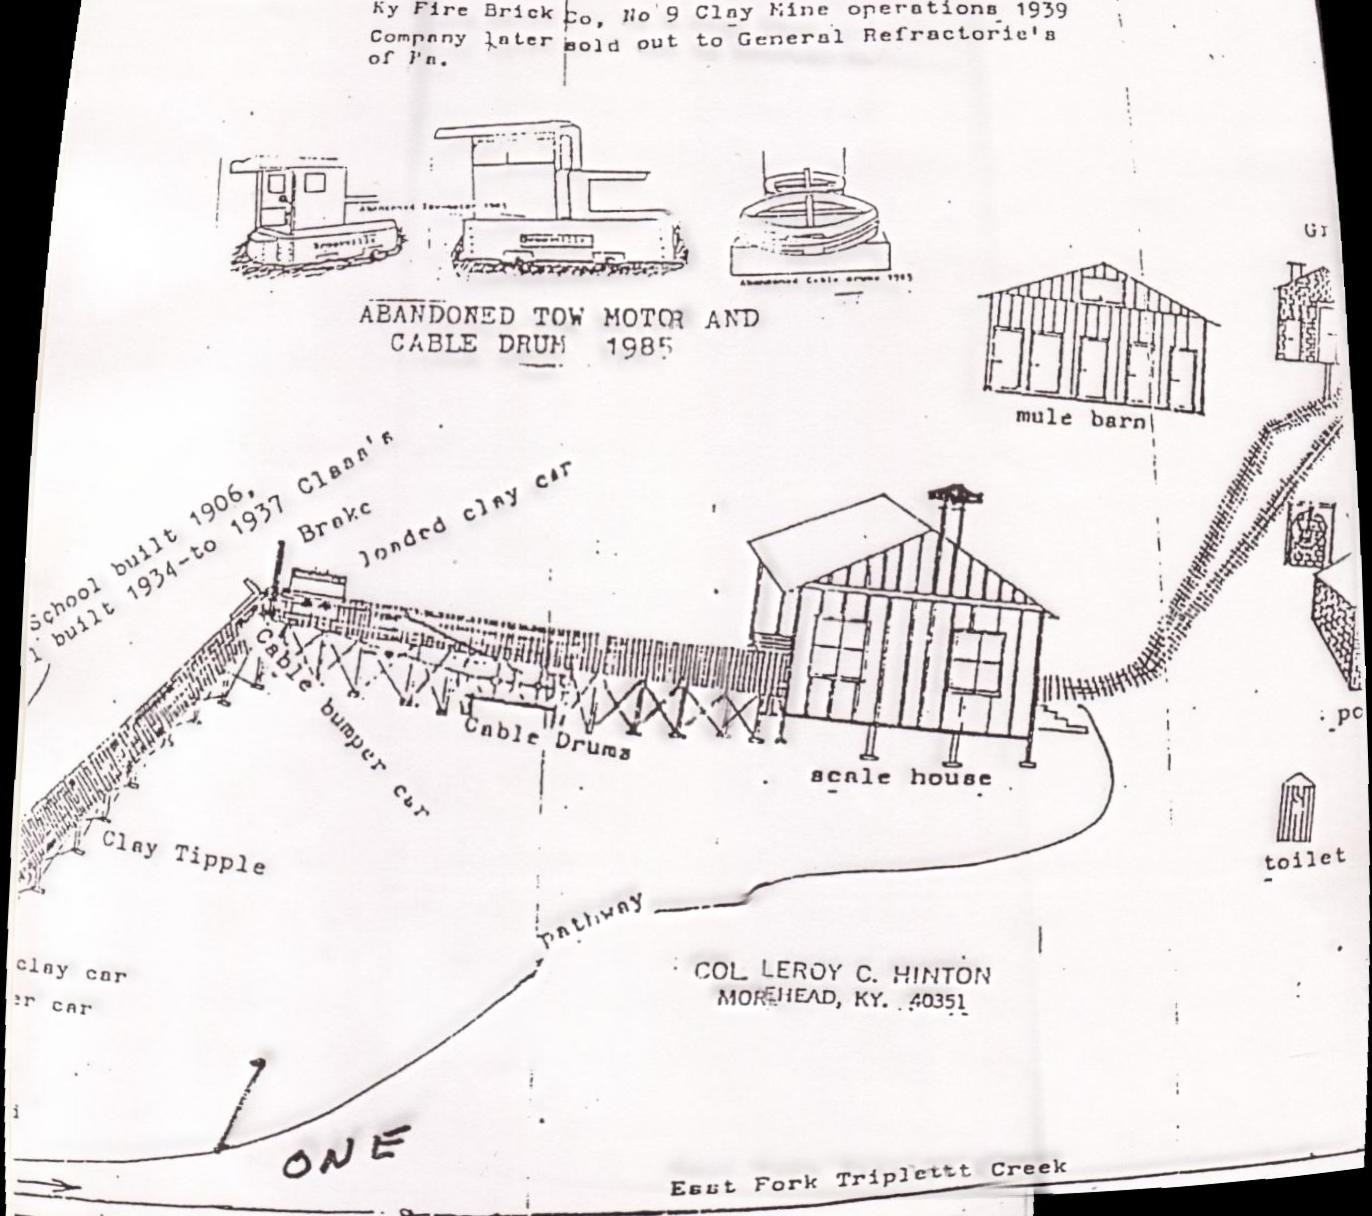 Ky Fire Brick Co, No 9 Clay Mine operations 1939
Company later sold out to General Refractorie's
of Pa.
Abandoned Tow-motor 1985
Brookville
Brookville
Abandoned Cable drums 1985
ABANDONED TOW MOTOR AND
CABLE DRUM 1985
mule barn
School built 1906,
built 1934-to 1937 Class's
Brake
loaded clay car
Cable bumper car
Cable Drums
scale house
Clay Tipple
toilet
pathway
clay car
er car
COL. LEROY C. HINTON
MOREHEAD, KY. 40351
ONE
East Fork Triplettt Creek